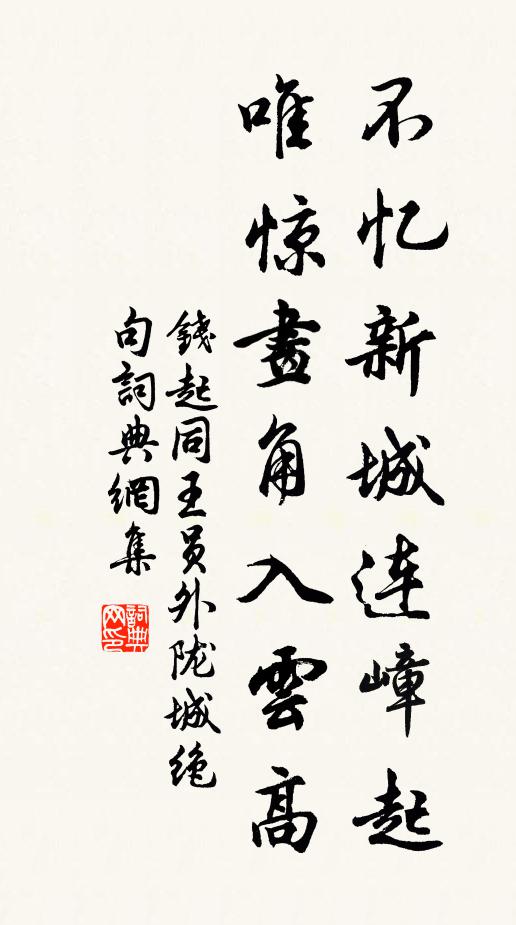 不忆新城连嶂起
唯惊畫角入雲高
錢起同王员外陇城绝
句詞典網集
詞典
网印